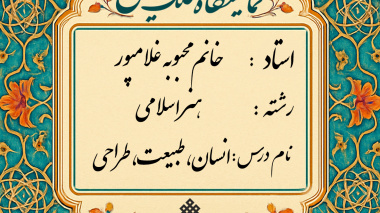 استاد : خانم محبوبه غلامپور
رشته : هنر اسلامی
نام درس: انسان، طبیعت، طراحی